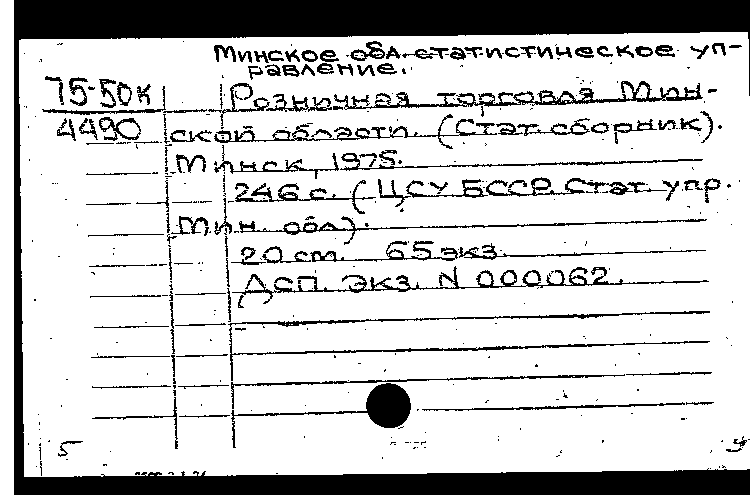 Минское обл. статистическое уп-
равление.
75-50к Розничная торговля Мин-
4490 ской области. (Стат. сборник).
Минск, 1975.
246 с. (ЦСУ БССР. Стат. упр.
Мин. обл).
20 см. 65 экз.
ДСП. Экз. N 000062.
5